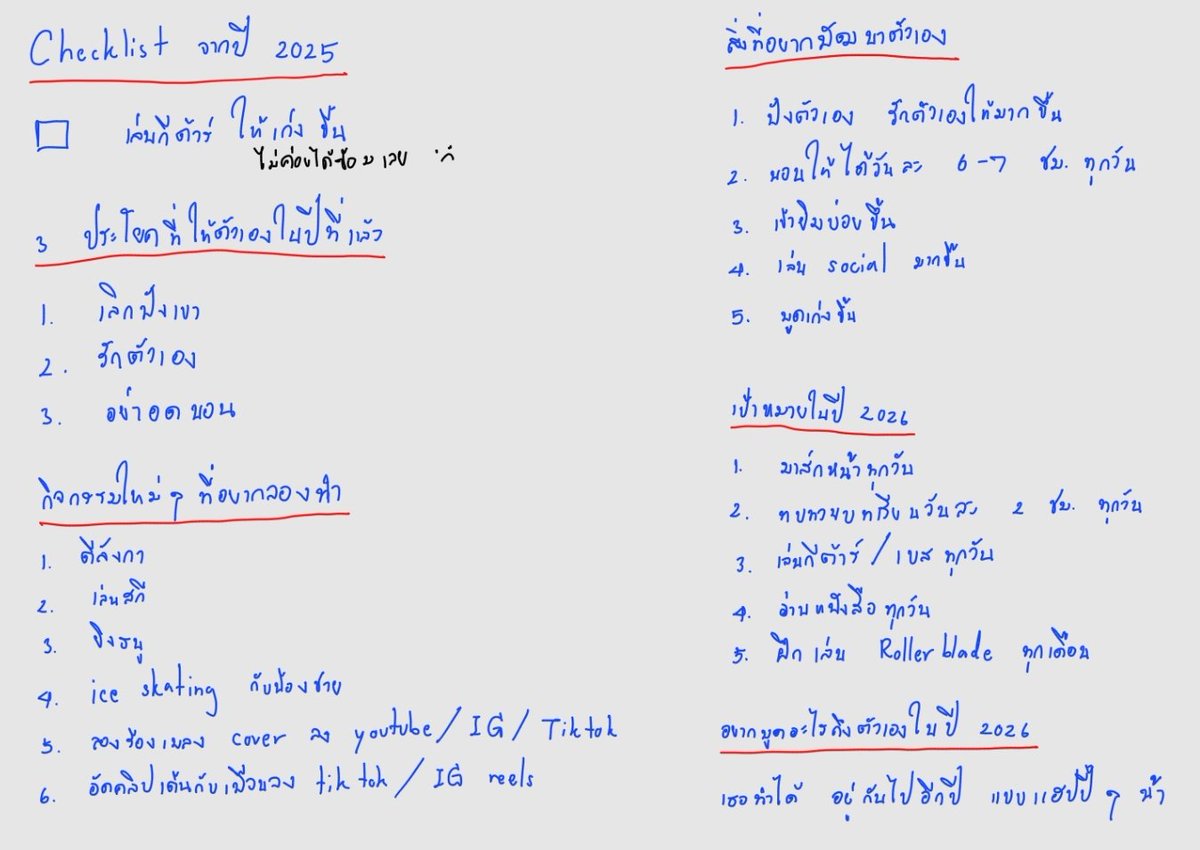 Checklist จากปี 2025
เล่นกีต้าร์ ให้เก่ง ขึ้น
ไม่ค่อยได้ซ้อมเลย
3 ประโยคที่ให้ตัวเองในปีที่แล้ว
1. เลิกฟังเขา
2. รักตัวเอง
3. อย่าอดนอน
กิจกรรมใหม่ๆ ที่อยากลองทำ
1. ตีลังกา
2. เล่นสกี
3. ยิงธนู
4. ice skating กับน้องชาย
5. ลองร้องเพลง cover ลง youtube / IG / Tiktok
6. อัดคลิปเต้นกับเพื่อนลง tiktok / IG reels
สิ่งที่อยากพัฒนาตัวเอง
1. ฟังตัวเอง รักตัวเองให้มากขึ้น
2. นอนให้ได้วันละ 6-7 ชม. ทุกวัน
3. เข้ายิมบ่อยขึ้น
4. เล่น social มากขึ้น
5. พูดเก่งขึ้น
เป้าหมายในปี 2026
1. มาส์กหน้าทุกวัน
2. ทบทวนบทเรียนวันละ 2 ชม. ทุกวัน
3. เล่นกีต้าร์ / เบส ทุกวัน
4. อ่านหนังสือทุกวัน
5. ฝึกเล่น Rollerblade ทุกเดือน
อยากพูดอะไรถึงตัวเองในปี 2026
เธอทำได้ อยู่กันไปอีกปี แบบแฮปปี้ๆ น้า